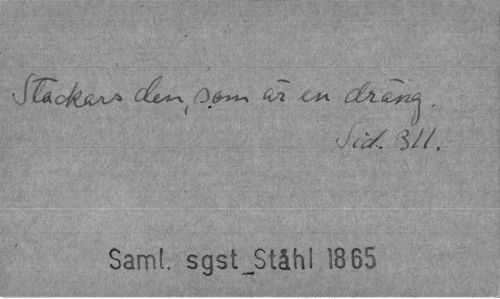 Stackars den, som är en dräng.
Sid. 311.
Saml. sgst_Ståhl 1865